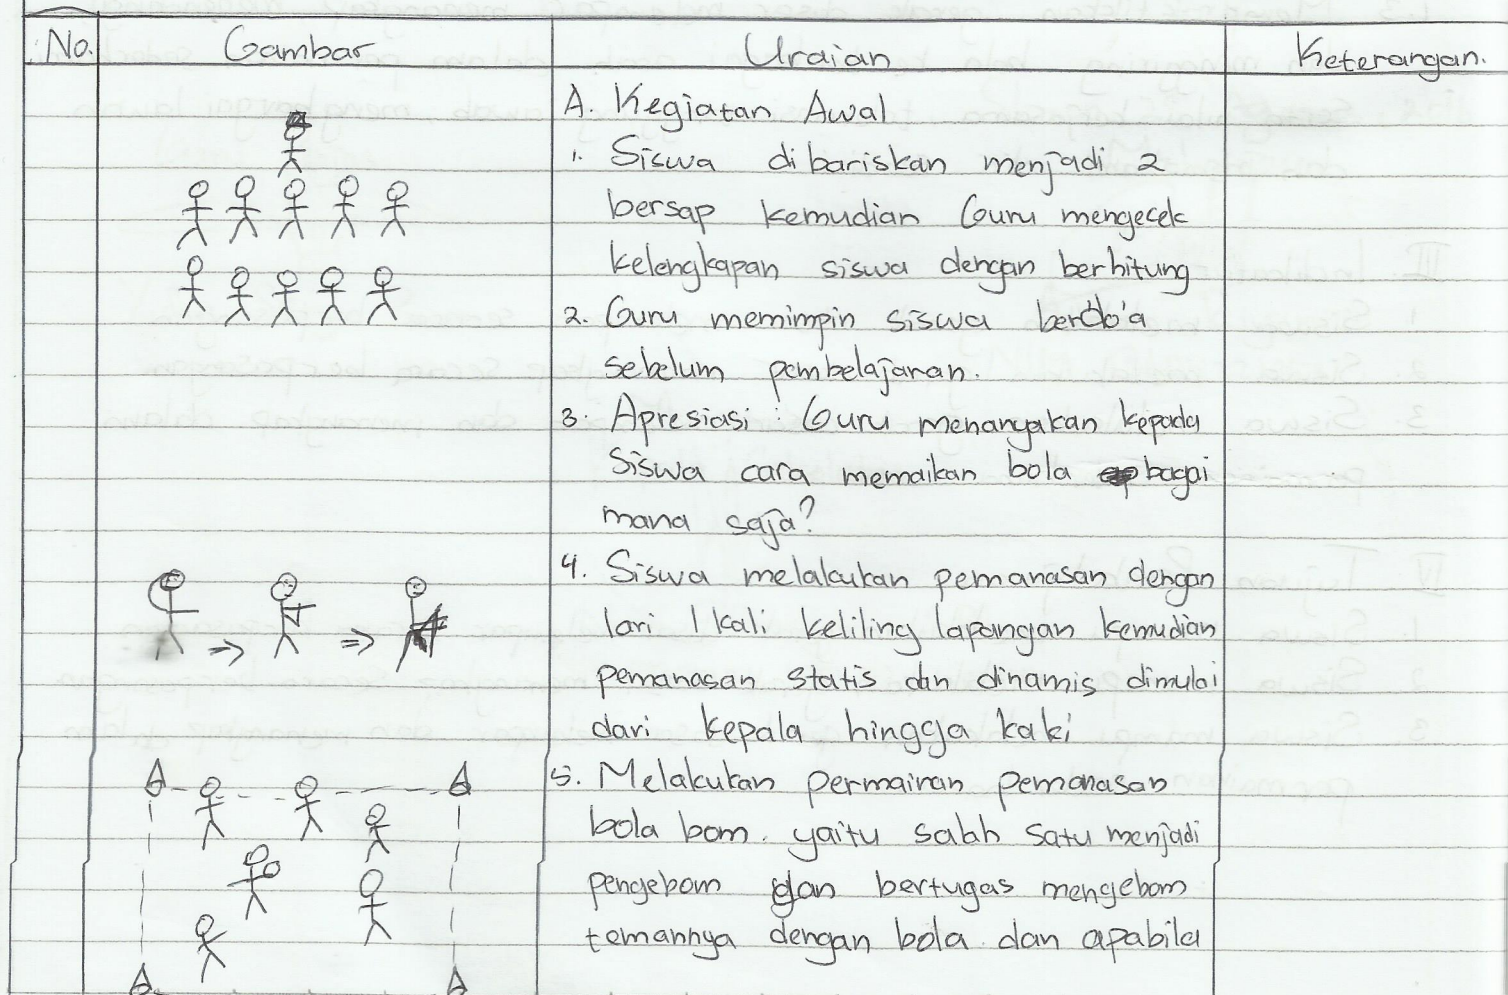 No. Gambar Uraian Keterangan.
A. Kegiatan Awal
1. Siswa dibariskan menjadi 2
bersap kemudian Guru mengecek
kelengkapan siswa dengan berhitung
2. Guru memimpin siswa berdo'a
sebelum pembelajaran.
3. Apresiasi : Guru menanyakan kepada
siswa cara memaikan bola bagai
mana saja?
4. Siswa melakukan pemanasan dengan
lari 1 kali keliling lapangan kemudian
pemanasan statis dan dinamis dimulai
dari kepala hingga kaki
5. Melakukan permainan pemanasan
bola bom. yaitu salah satu menjadi
pengebom dan bertugas mengebom
temannya dengan bola. dan apabila